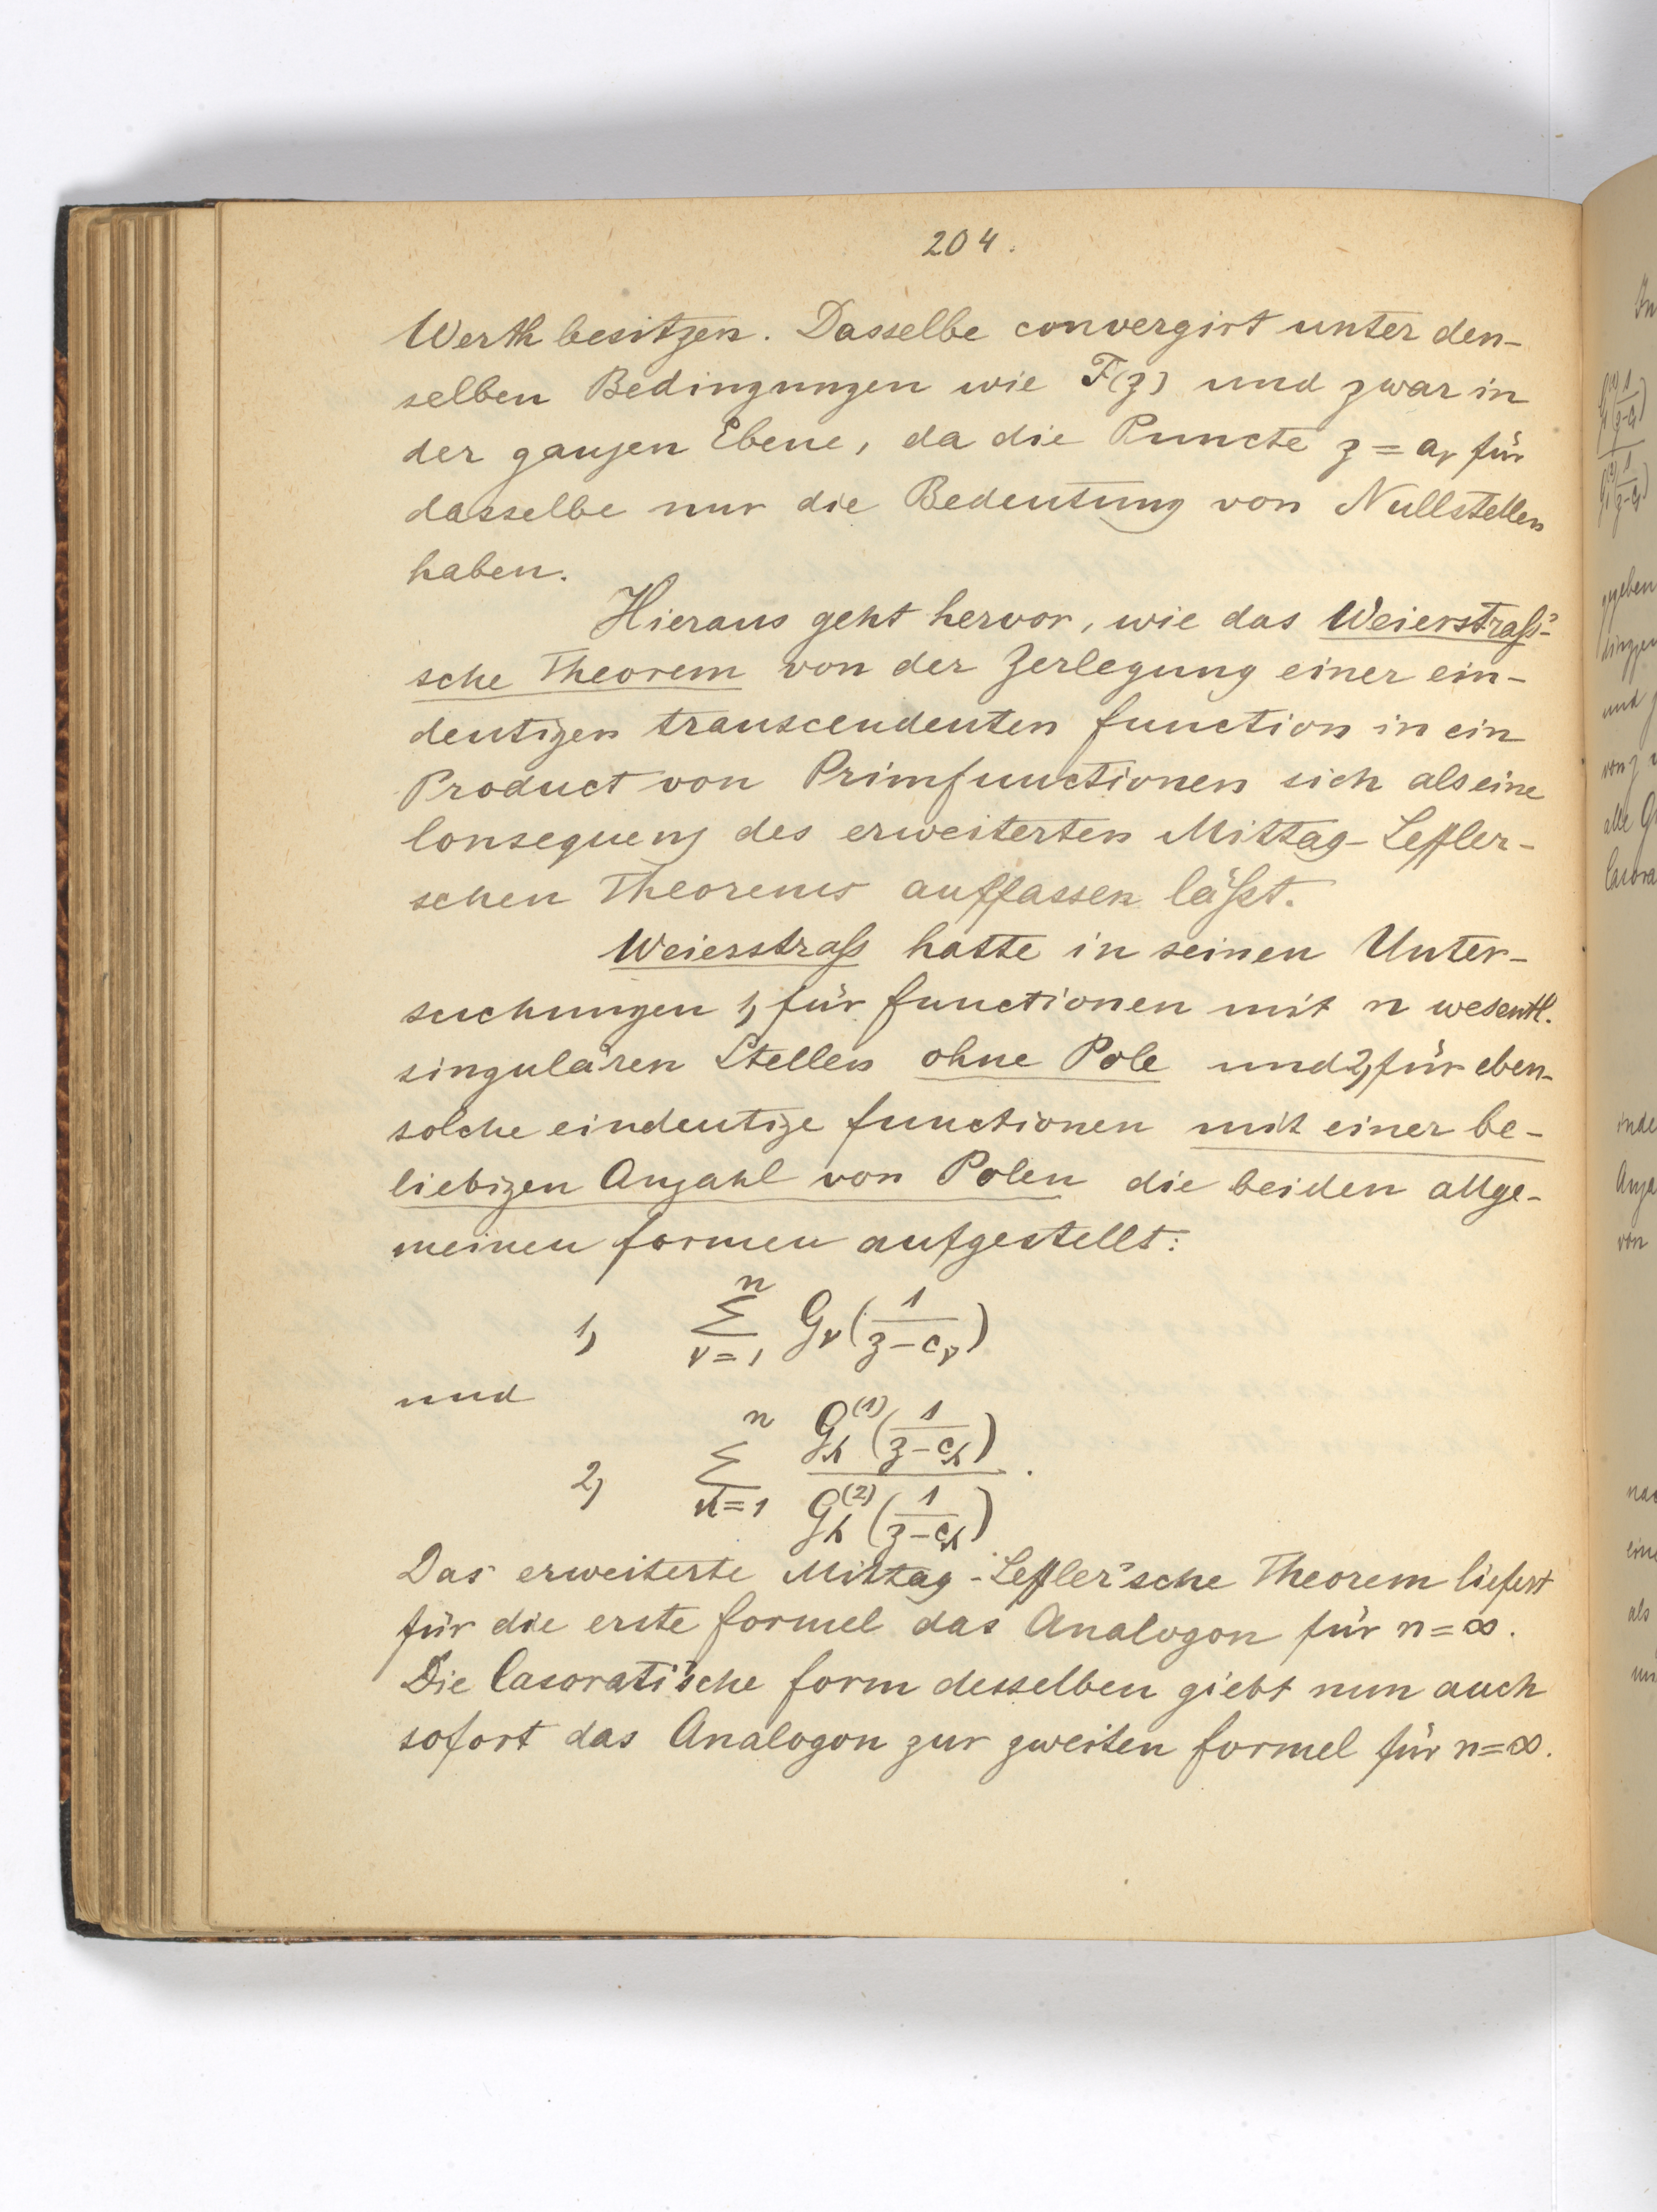 204.
Werth besitzen. Dasselbe convergirt unter den-
selben Bedingungen wie F(z) und zwar in
der ganzen Ebene, da die Puncte z = aᵥ für
dasselbe nur die Bedeutung von Nullstellen
haben.
Hieraus geht hervor, wie das Weierstraß'-
sche Theorem von der Zerlegung einer ein-
deutigen transcendenten Function in ein
Product von Primfunctionen sich als eine
Consequenz des erweiterten Mittag-Leffler-
schen Theorems auffassen läßt.
Weierstraß hatte in seinen Unter-
suchungen 1, für Functionen mit n wesentl.
singulären Stellen ohne Pole und 2, für eben-
solche eindeutige Functionen mit einer be-
liebigen Anzahl von Polen die beiden allge-
meinen Formen aufgestellt:
1, \sum_{\nu=1}^{n} G_\nu(\frac{1}{z-c_\nu})
und
2, \sum_{h=1}^{n} \frac{G_h^{(1)}(\frac{1}{z-c_h})}{G_h^{(2)}(\frac{1}{z-c_h})}.
Das erweiterte Mittag-Leffler'sche Theorem liefert
für die erste Formel das Analogon für n=∞.
Die Casorati'sche Form desselben giebt nun auch
sofort das Analogon zur zweiten Formel für n=∞.
gegeben
und
alle
von
als